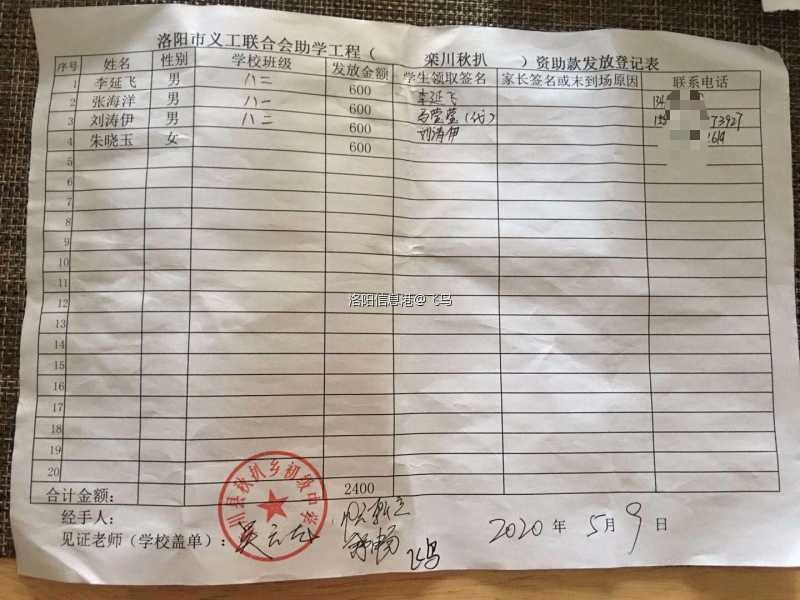 洛阳市义工联合会助学工程（ 栾川秋扒 ）资助款发放登记表
序号 姓名 性别 学校班级 发放金额 学生领取签名 家长签名或未到场原因 联系电话
1 李延飞 男 八二 600 李延飞 134
2 张海洋 男 八一 600 莹莹（代） 73927
3 刘涛伊 男 八二 600 刘涛伊 1614
4 朱晓玉 女 600
5
6
7
8
9
10
11
12
洛阳信息港@飞鸟
13
14
15
16
17
18
19
20
合计金额： 2400
川县秋扒乡初级中学
经手人：
见证老师（学校盖单）： 飞鸟 2020 年 5 月 9 日